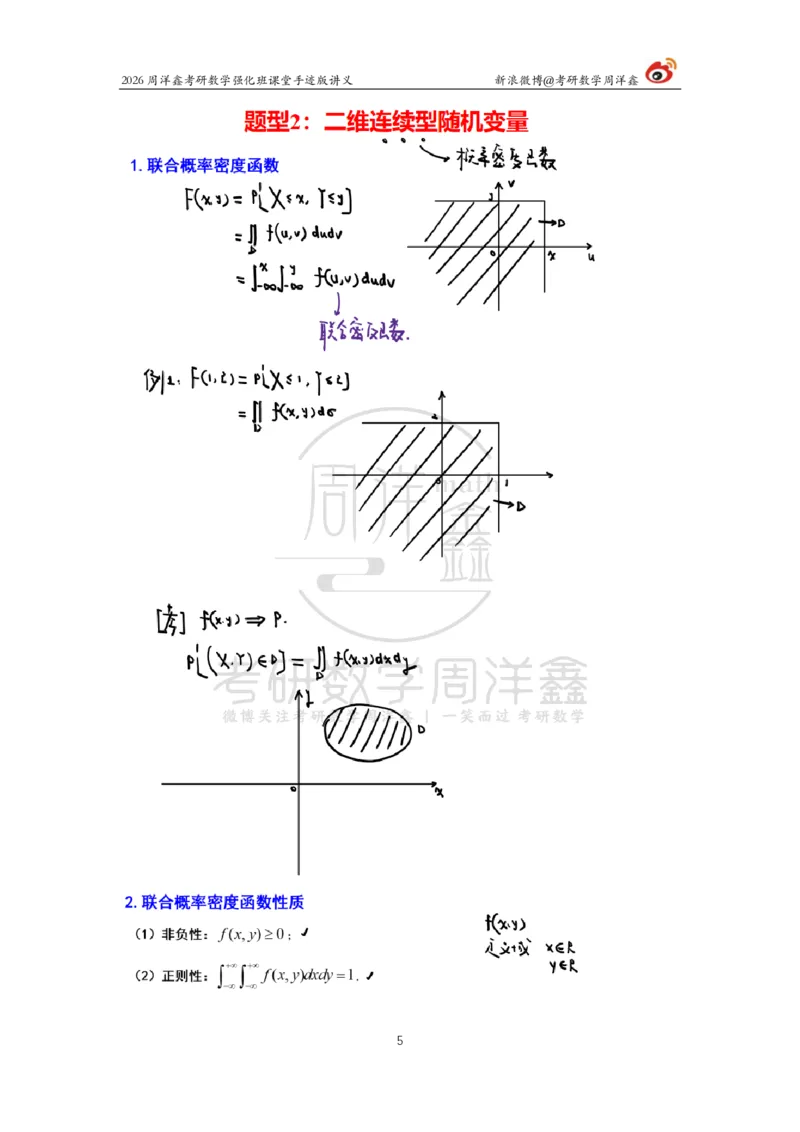 2026 周洋鑫考研数学强化班课堂手迹版讲义 新浪微博@考研数学周洋鑫
题型2：二维连续型随机变量
概率密度函数
1. 联合概率密度函数
F(x,y) = P{X≤x, Y≤y}
= ∬_D f(u,v) dudv
= ∫_{-∞}^{x} ∫_{-∞}^{y} f(u,v) dudv
联合密度函数.
y v
D
0 x u
例1: F(1,2) = P{X≤1, Y≤2}
= ∬_D f(x,y) dσ
2
0 1
D
周洋鑫
math
[考] f(x,y) ⇒ P.
P{(X,Y)∈D} = ∬_D f(x,y)dxdy
考研数学周洋鑫
微博关注考研数学周洋鑫 | 一笑而过 考研数学
y
D
0 x
2. 联合概率密度函数性质
（1）非负性： f(x,y)≥0； ✓
f(x,y)
定义域 x∈R
y∈R
（2）正则性： ∫_{-∞}^{+∞} ∫_{-∞}^{+∞} f(x,y)dxdy=1. ✓
5